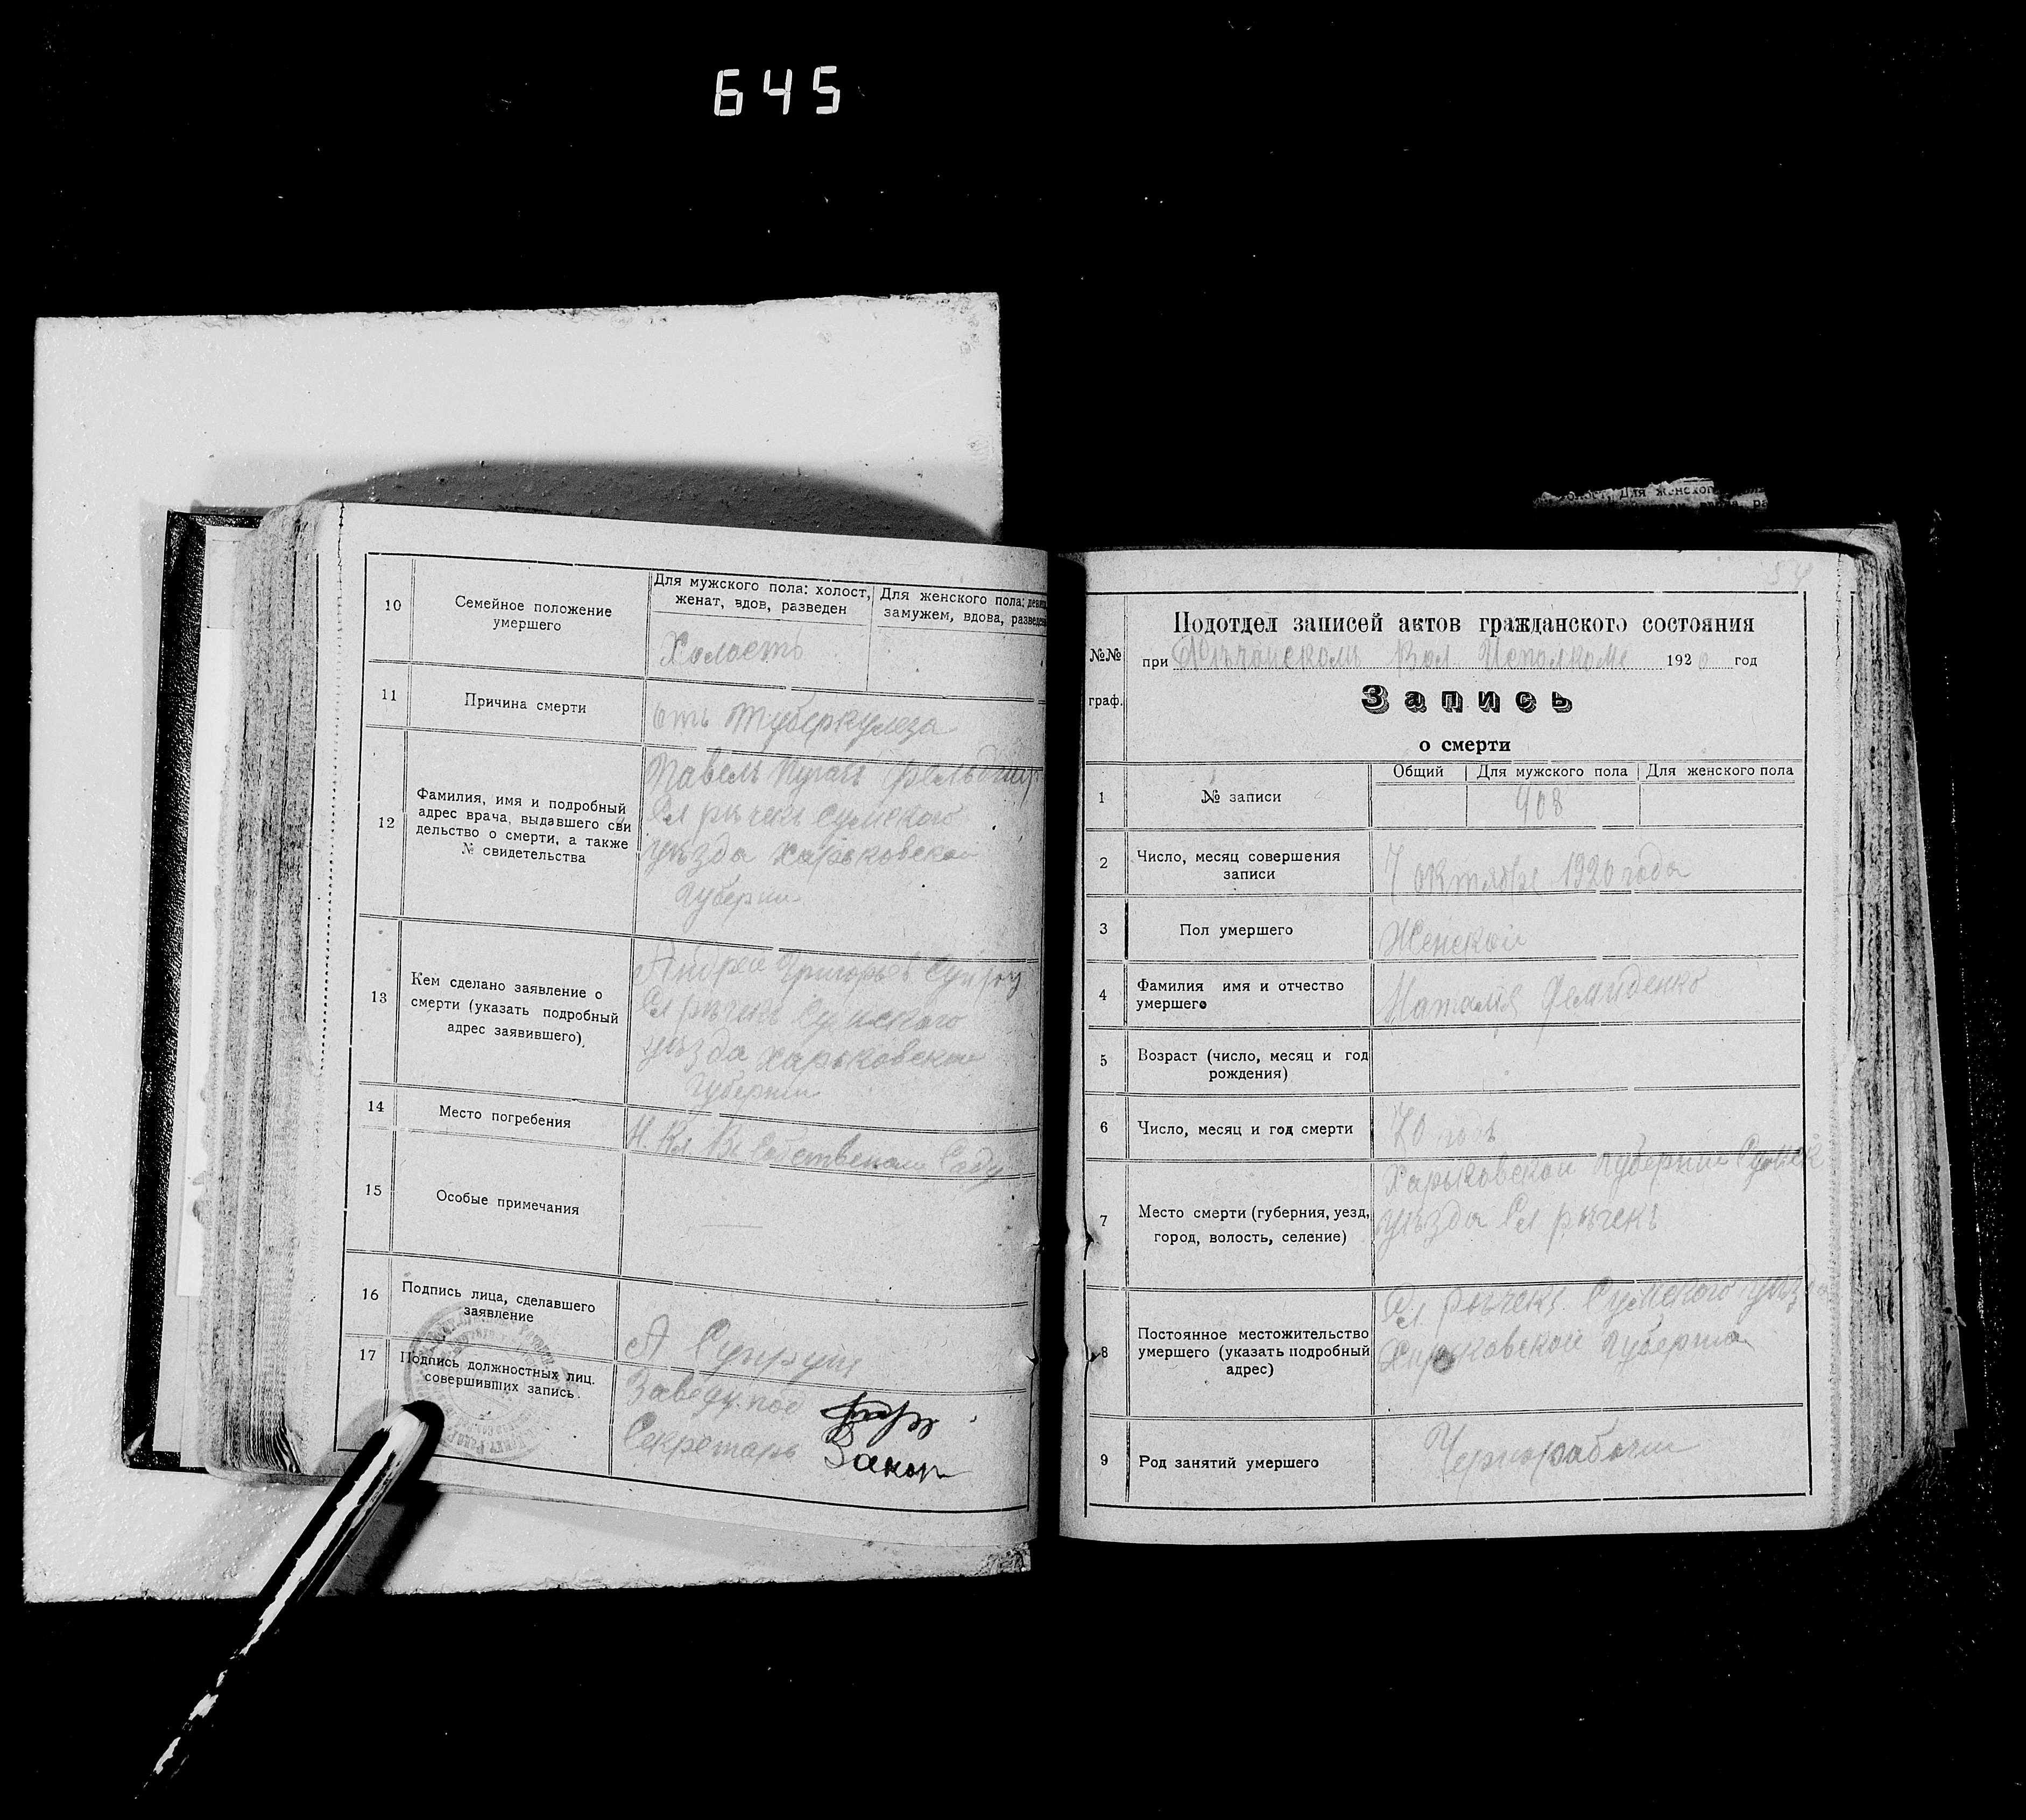 645
10
Семейное положение
умершего
Для мужского пола: холост,
женат, вдов, разведен
Для женского пола: девиц
замужем, вдова, разведен
Холостъ
11
Причина смерти
отъ туберкулеза
12
Фамилия, имя и подробный
адрес врача, выдавшего сви
дельство о смерти, а также
№ свидетельства
Павелъ
Сл рѣчекъ Сумского
уѣзда Харьковской
Губернии
13
Кем сделано заявление о
смерти (указать подробный
адрес заявившего)
Андрей Григорьев
Сл рѣчекъ Сумского
уѣзда Харьковской
Губернии
14
Место погребения
Собственом Саду
15
Особые примечания
16
Подпись лица, сделавшего
заявление
А Супрун
17
Подпись должностных лиц.
совершивших запись.
Заведу. под
Секретарь
54
№№
граф.
Подотдел записей актов гражданского состояния
при Рѣчанскомъ Вол. Исполкоме 1920 год
Запись
о смерти
1
№ записи
Общий
Для мужского пола
Для женского пола
408
2
Число, месяц совершения
записи
7 октября 1920 года
3
Пол умершего
Женской
4
Фамилия имя и отчество
умершего
Наталия Демиденко
5
Возраст (число, месяц и год
рождения)
6
Число, месяц и год смерти
70 годъ
7
Место смерти (губерния, уезд,
город, волость, селение)
Харьковской губернии Сумск
уѣзда Сл рѣчекъ
8
Постоянное местожительство
умершего (указать подробный
адрес)
Сл рѣчекъ Сумского уѣзда
Харьковской Губернии
9
Род занятий умершего
Чернорабочи